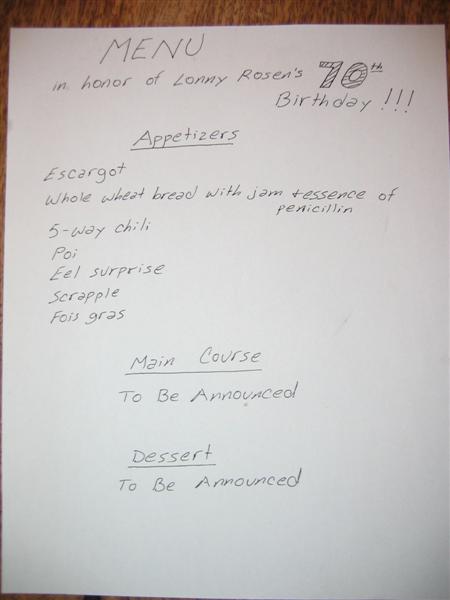 MENU
in honor of Lonny Rosen's 70th
Birthday !!!
Appetizers
Escargot
Whole wheat bread with jam + essence of
penicillin
5-way chili
Poi
Eel surprise
Scrapple
Fois gras
Main Course
To Be Announced
Dessert
To Be Announced